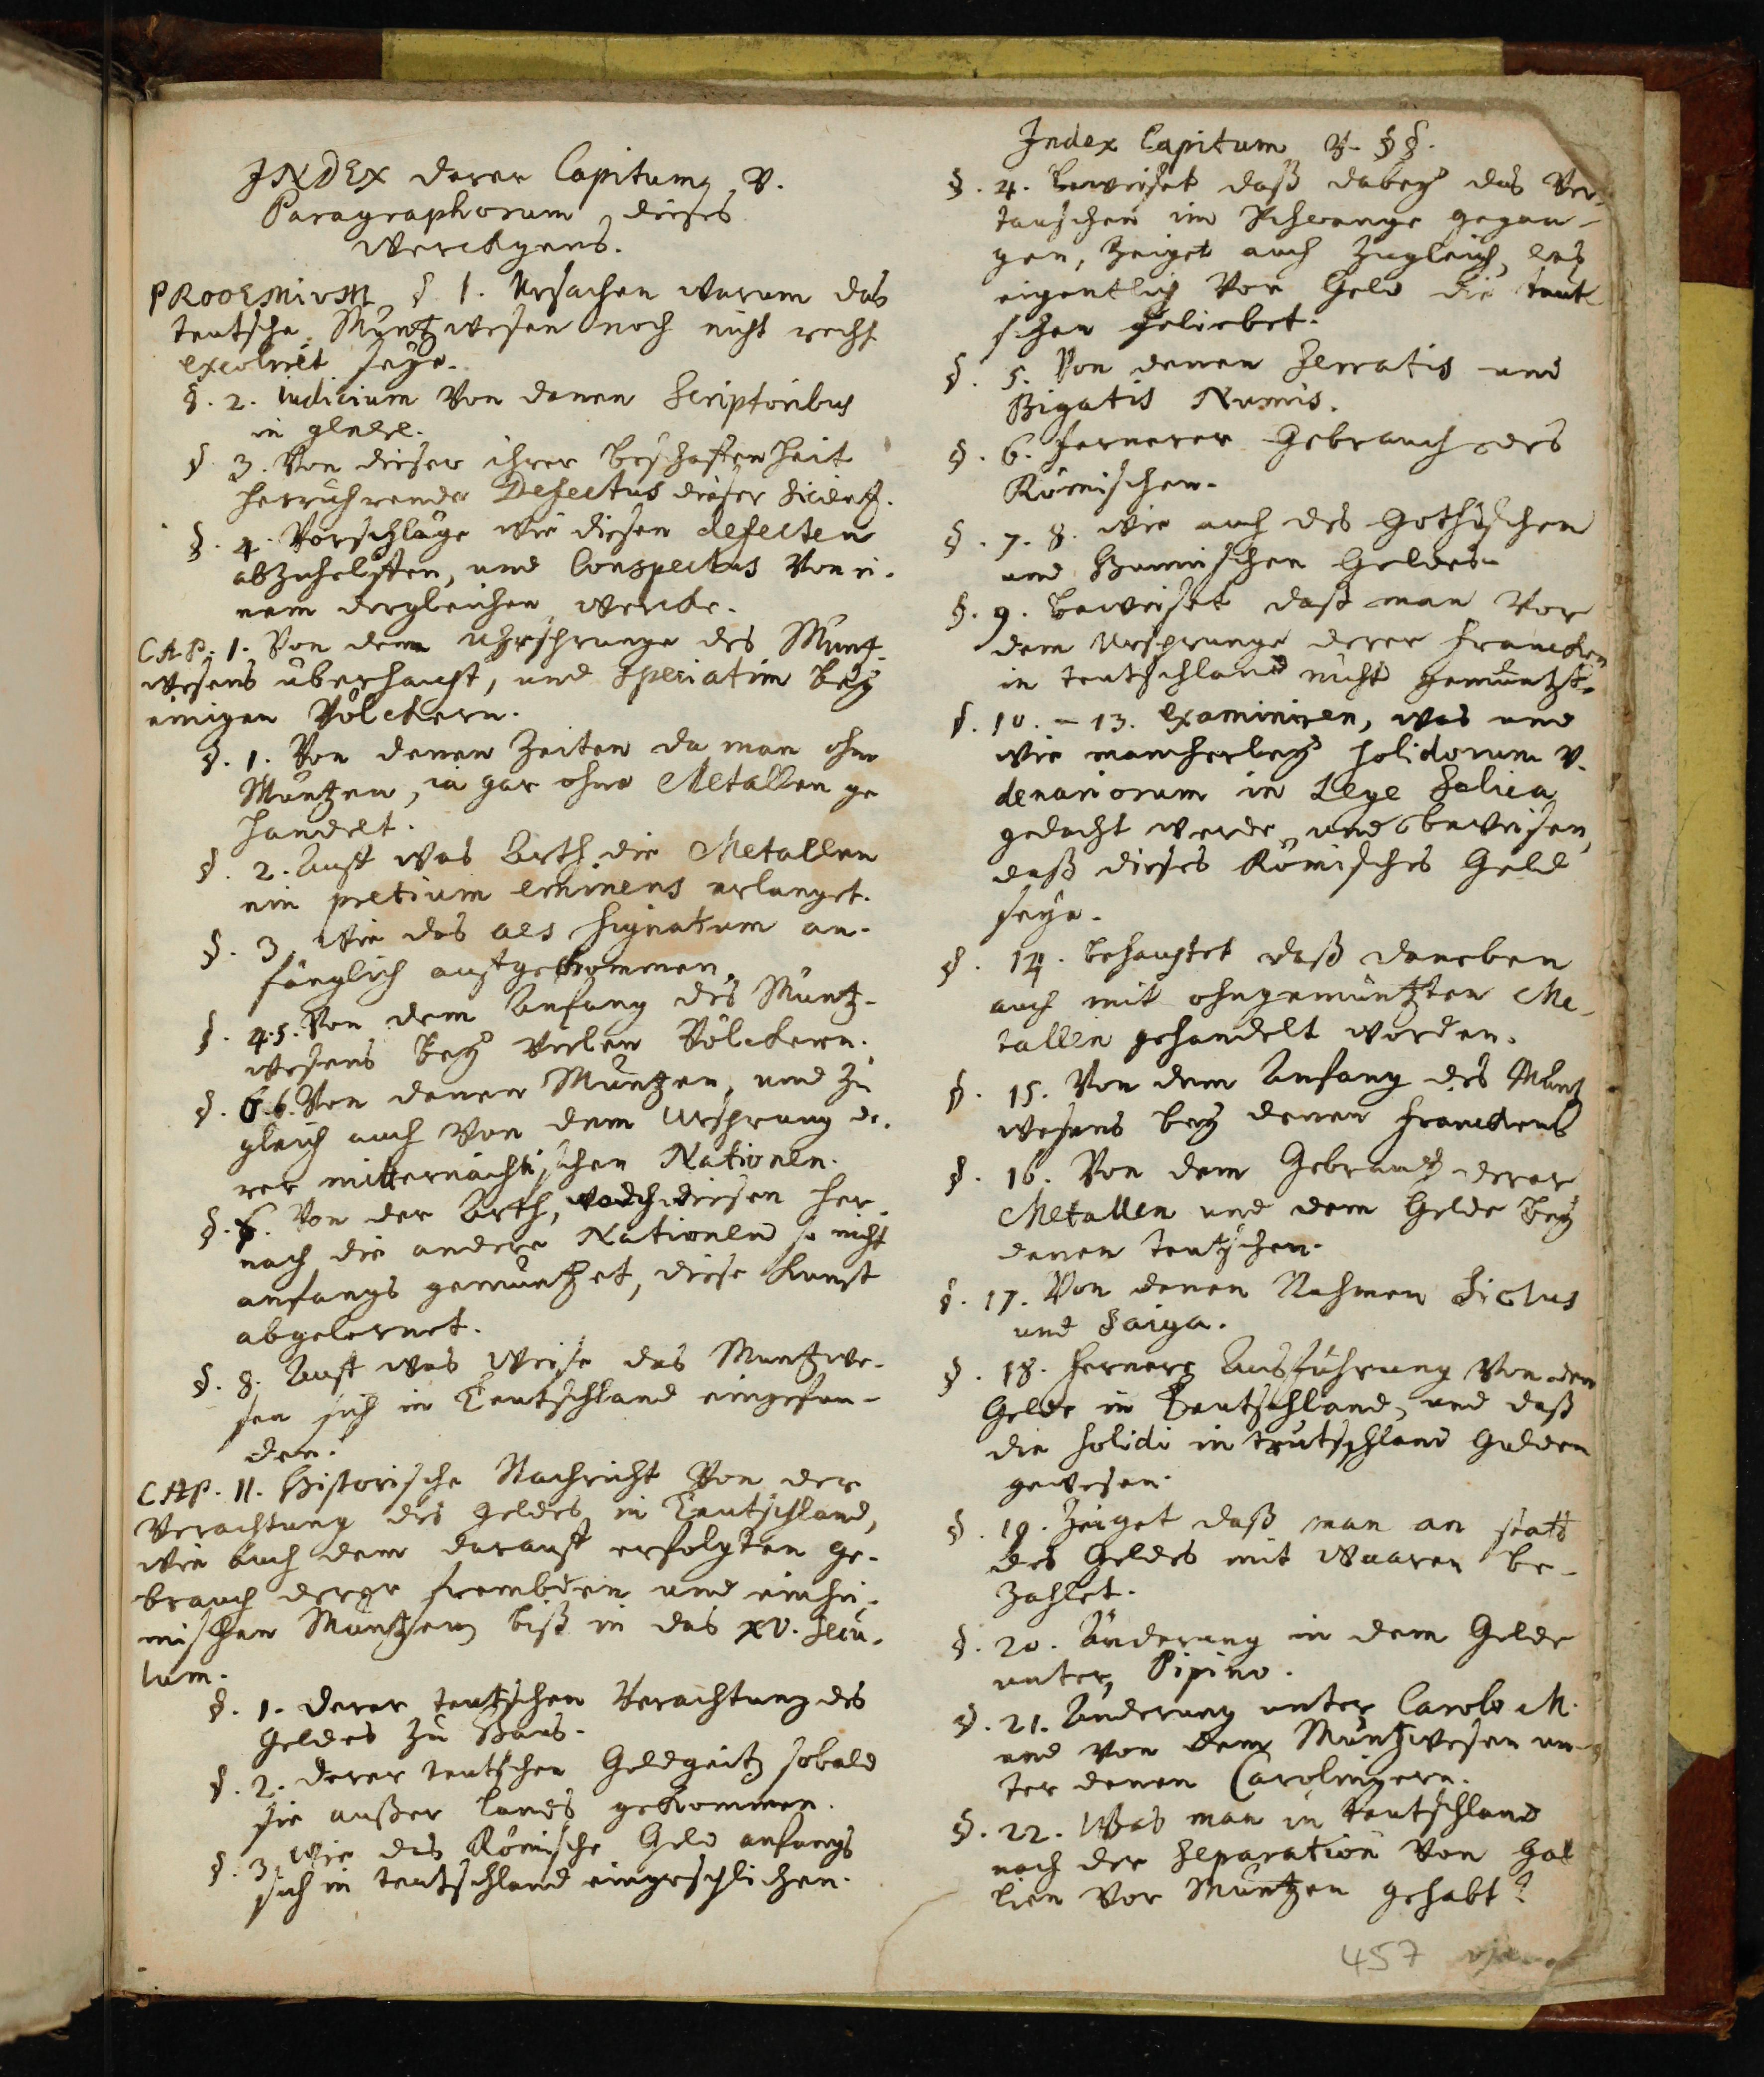 INDEX derer Capitum, v.
Paragraphorum, dieses
Werckgens.
PROOEMIUM §. 1. Ursachen warum das
teutsche Müntzwesen noch nicht recht
excolirt seye.
§. 2. iudicium von denen Scriptoribus
in genere.
§ 3. Von dieser ihrer Beschaffenheit
herrührende Defectus dieser
§. 4. Vorschläge wie diesen defecten
abzuhelffen, und Conspectus von ei-
nem dergleichen Wercke.
CAP. 1. Von dem Uhrsprunge des Müntz-
wesens überhaupt, und speciatim bey
einigen Völckern.
§. 1. Von denen Zeiten da man ohne
Müntzen, ja gar ohne Metallen ge
handelt.
§. 2. Auff was Arth die Metallen
ein pretium eminens erlanget.
§. 3. Wie das aes signatum an-
fänglich auffgekommen.
§. 4.5. Von dem Anfang des Müntz-
wesens bey vielen Völckern.
§. 6. Von denen Müntzen, und zu
gleich auch von dem Ursprung de-
rer mitternächtischen Nationen.
§. Von der Arth, diesen her-
nach die andere Nationen so nicht
anfangs gemüntzet, diese Kunst
abgelernet.
§. 8. Auff was Weise das Müntzwe-
sen sich in Teutschland eingefun-
den.
CAP. II. Historische Nachricht von der
Verachtung des Geldes in Teutschland,
wie auch dem darauff erfolgten Ge-
brauch derer frembden und einhei-
mischen Müntzen biß in das XV. Secu-
lum.
§. 1. Derer teutschen Verachtung des
Geldes zu Haus.
§. 2. Derer teutschen Geldgeitz sobald
sie außer Lands gekommen.
§. 3. Wie das Römische Geld anfangs
sich in teutschland eingeschlichen.
Index Capitum & §§.
§. 4. Beweiset daß dabey das Ver-
tauschen im Schwange gegan-
gen, zeiget auch zugleich, was
eigentlich vor Geld die teut
schen geliebet.
§. 5. Von denen Serratis und
Bigatis Numis.
§. 6. Fernerer Gebrauch des
Römischen.
§. 7. 8. wie auch des Gothischen
und Hunnischen Geldes.
§. 9. Beweiset daß man vor
dem Ursprunge derer Francken
in teutschland nicht gemüntzt.
§. 10. - 13. Examiniren, was und
wie mancherley Solidorum v.
denariorum in Lege Salica
gedacht werde, und beweisen,
daß dieses Römisches Geld
seye.
§. 14. Behauptet daß daneben
auch mit ohngemüntzten Me-
tallen gehandelt worden.
§. 15. Von dem Anfang des Müntz
wesens bey denen Francken
§. 16. Von dem Gebrauch derer
Metallen und dem Gelde bey
denen teutschen.
§. 17. Von denen Nahmen Siclus
und Saiga.
§. 18. Fernere Ausführung von dem
Gelde in Teutschland, und daß
die Solidi in teutschland Gulden
gewesen.
§. 19. Zeiget daß man an statt
des Geldes mit Waaren be-
zahlet.
§. 20. Änderung in dem Gelde
unter Pipino.
§. 21. Änderung unter Carolo M.
und von dem Müntzwesen un-
ter denen Carolingern.
§. 22. Was man in teutschland
nach der Separation von Gal
lien vor Müntzen gehabt?
457